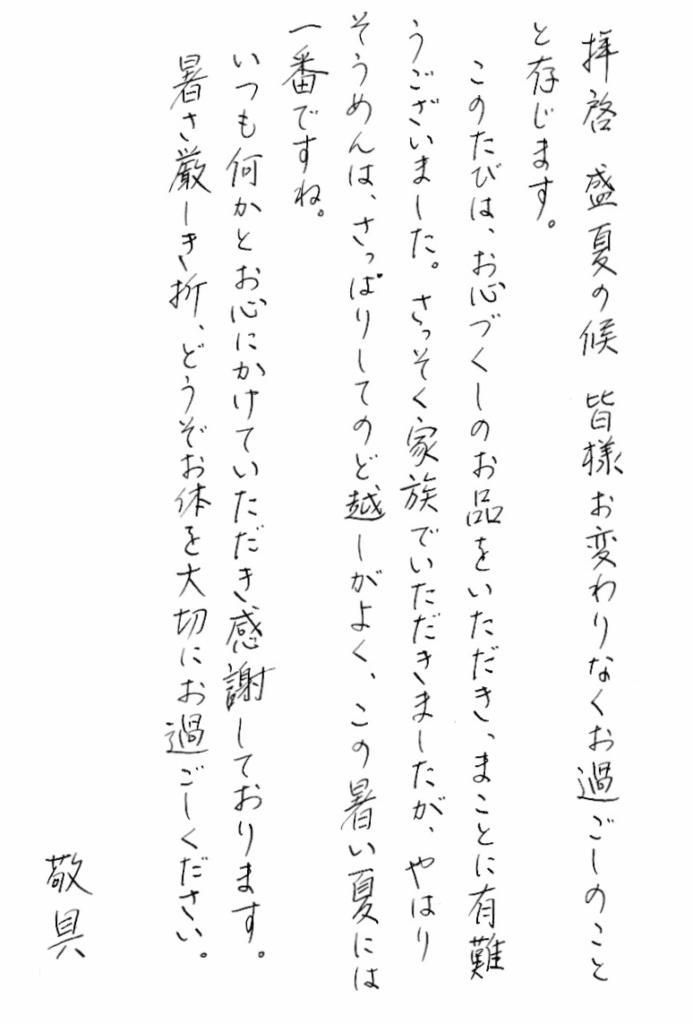 拝啓　盛夏の候　皆様お変わりなくお過ごしのこと
と存じます。
このたびは、お心づくしのお品をいただき、まことに有難
うございました。さっそく家族でいただきましたが、やはり
そうめんは、さっぱりしてのど越しがよく、この暑い夏には
一番ですね。
いつも何かとお心にかけていただき感謝しております。
暑さ厳しき折、どうぞお体を大切にお過ごしください。
敬具